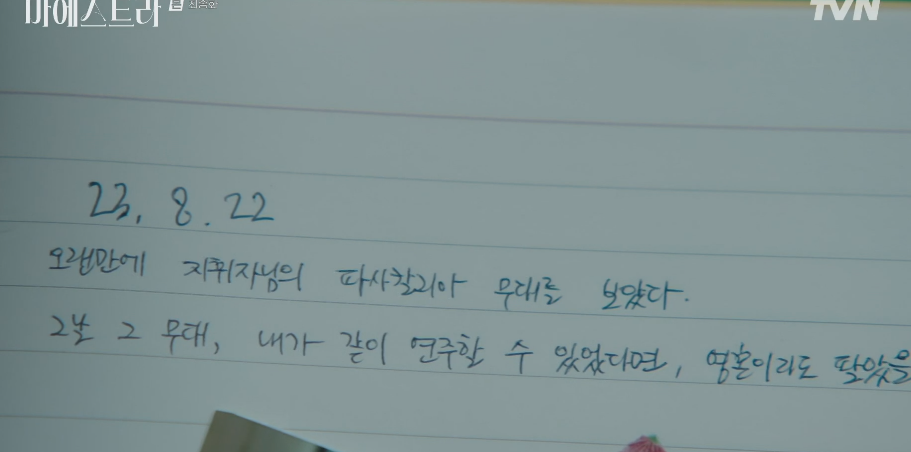 마에스트라
tvN
23. 8. 22
오랜만에 지휘자님의 파사칼리아 무대를 보았다.
그날 그 무대, 내가 같이 연주할 수 있었다면, 영혼이라도 팔았을